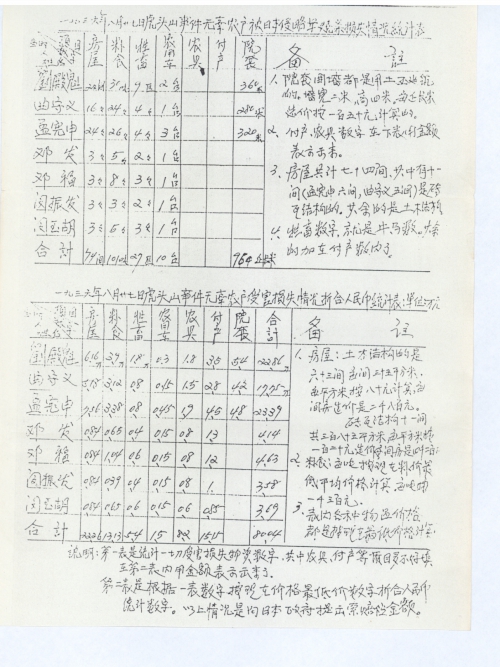 一九三六年八月廿七日虎头山事件无辜农户被日本侵略军观念损失情况统计表
项目 房屋 粮食 牲畜 农用车 农具 付户 院套 备 註
刘殿魁 9頭 2台 360米
曲守义 16间 24石 4头 1台 280米
孟宪申 24间 26石 4头 3台 320米
邓发 3间 5石 2头 1台
邓福 3间 8石 3头 1台
闫振发 3间 3石 2头 1台
闫玉胡 3间 5石 3头 1台
合計 10台 960立米
1、院套间墙都是用土
的。墙宽二米,高四米,每延长米
结价按一百三十元計算的。
2、付户、农具数字在下表用金额
表示出来。
3、房屋共计七十四间,其中有十一
间(孟宪申六间,曲守义五间)是砖
瓦结构的,其余的是土木结构
4、牲畜数字,就是牛马数。其余
的加在付户数内了
一九三六年八月廿七日虎头山事件无辜农户受害损失情况折合人民币统计表 单位:万元
项目 房屋 粮食 牲畜 农用车 农具 付户 院套 合計 备 註
刘殿魁 1.8 0.3 1.8 3.5 5.4 22.86
曲守义 3.12 0.8 0.15 1.5 2.8 4.2 17.75
孟宪申 7.56 3.38 0.8 0.45 1.9 4.5 4.8 23.39
邓发 0.84 0.65 0.4 0.15 0.8 1.3 4.14
邓福 0.84 1.04 0.6 0.15 0.8 1.2 4.63
闫振发 0.84 0.39 0.4 0.15 0.8 1. 3.58
闫玉胡 0.84 0.65 0.6 0.15 0.6 0.85 3.69
合計 13.13 5.4 1.5 8.2 15.15 80.04
1、房屋:土木结构的是
六十三间 每间三十五平方米,
每平方米按八十元计算,每
间房造价是二千八百元。
砖瓦结构十一间
共三百八十五平方米,每平方米按
一百二十元
2、粮食:每吨按现在粮价最
低平均价格計算,每吨为
一千三百元。
3、表内各种物品价格
都是按現在最低价格計算
説明:第一表是统计一切受害损失物资数字,其中农具,付户等项目不好填
在第二表内用金额表示出来了。
第二表是根据一表数字按现在价格最低价数字折合人民币
统计数字。以上情况是向日本政府提出索赔偿金额。